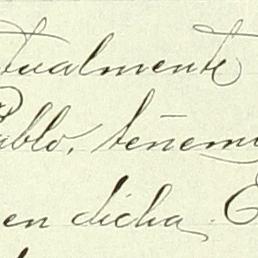 tualmente
Pablo, teñemo
en dicha. E